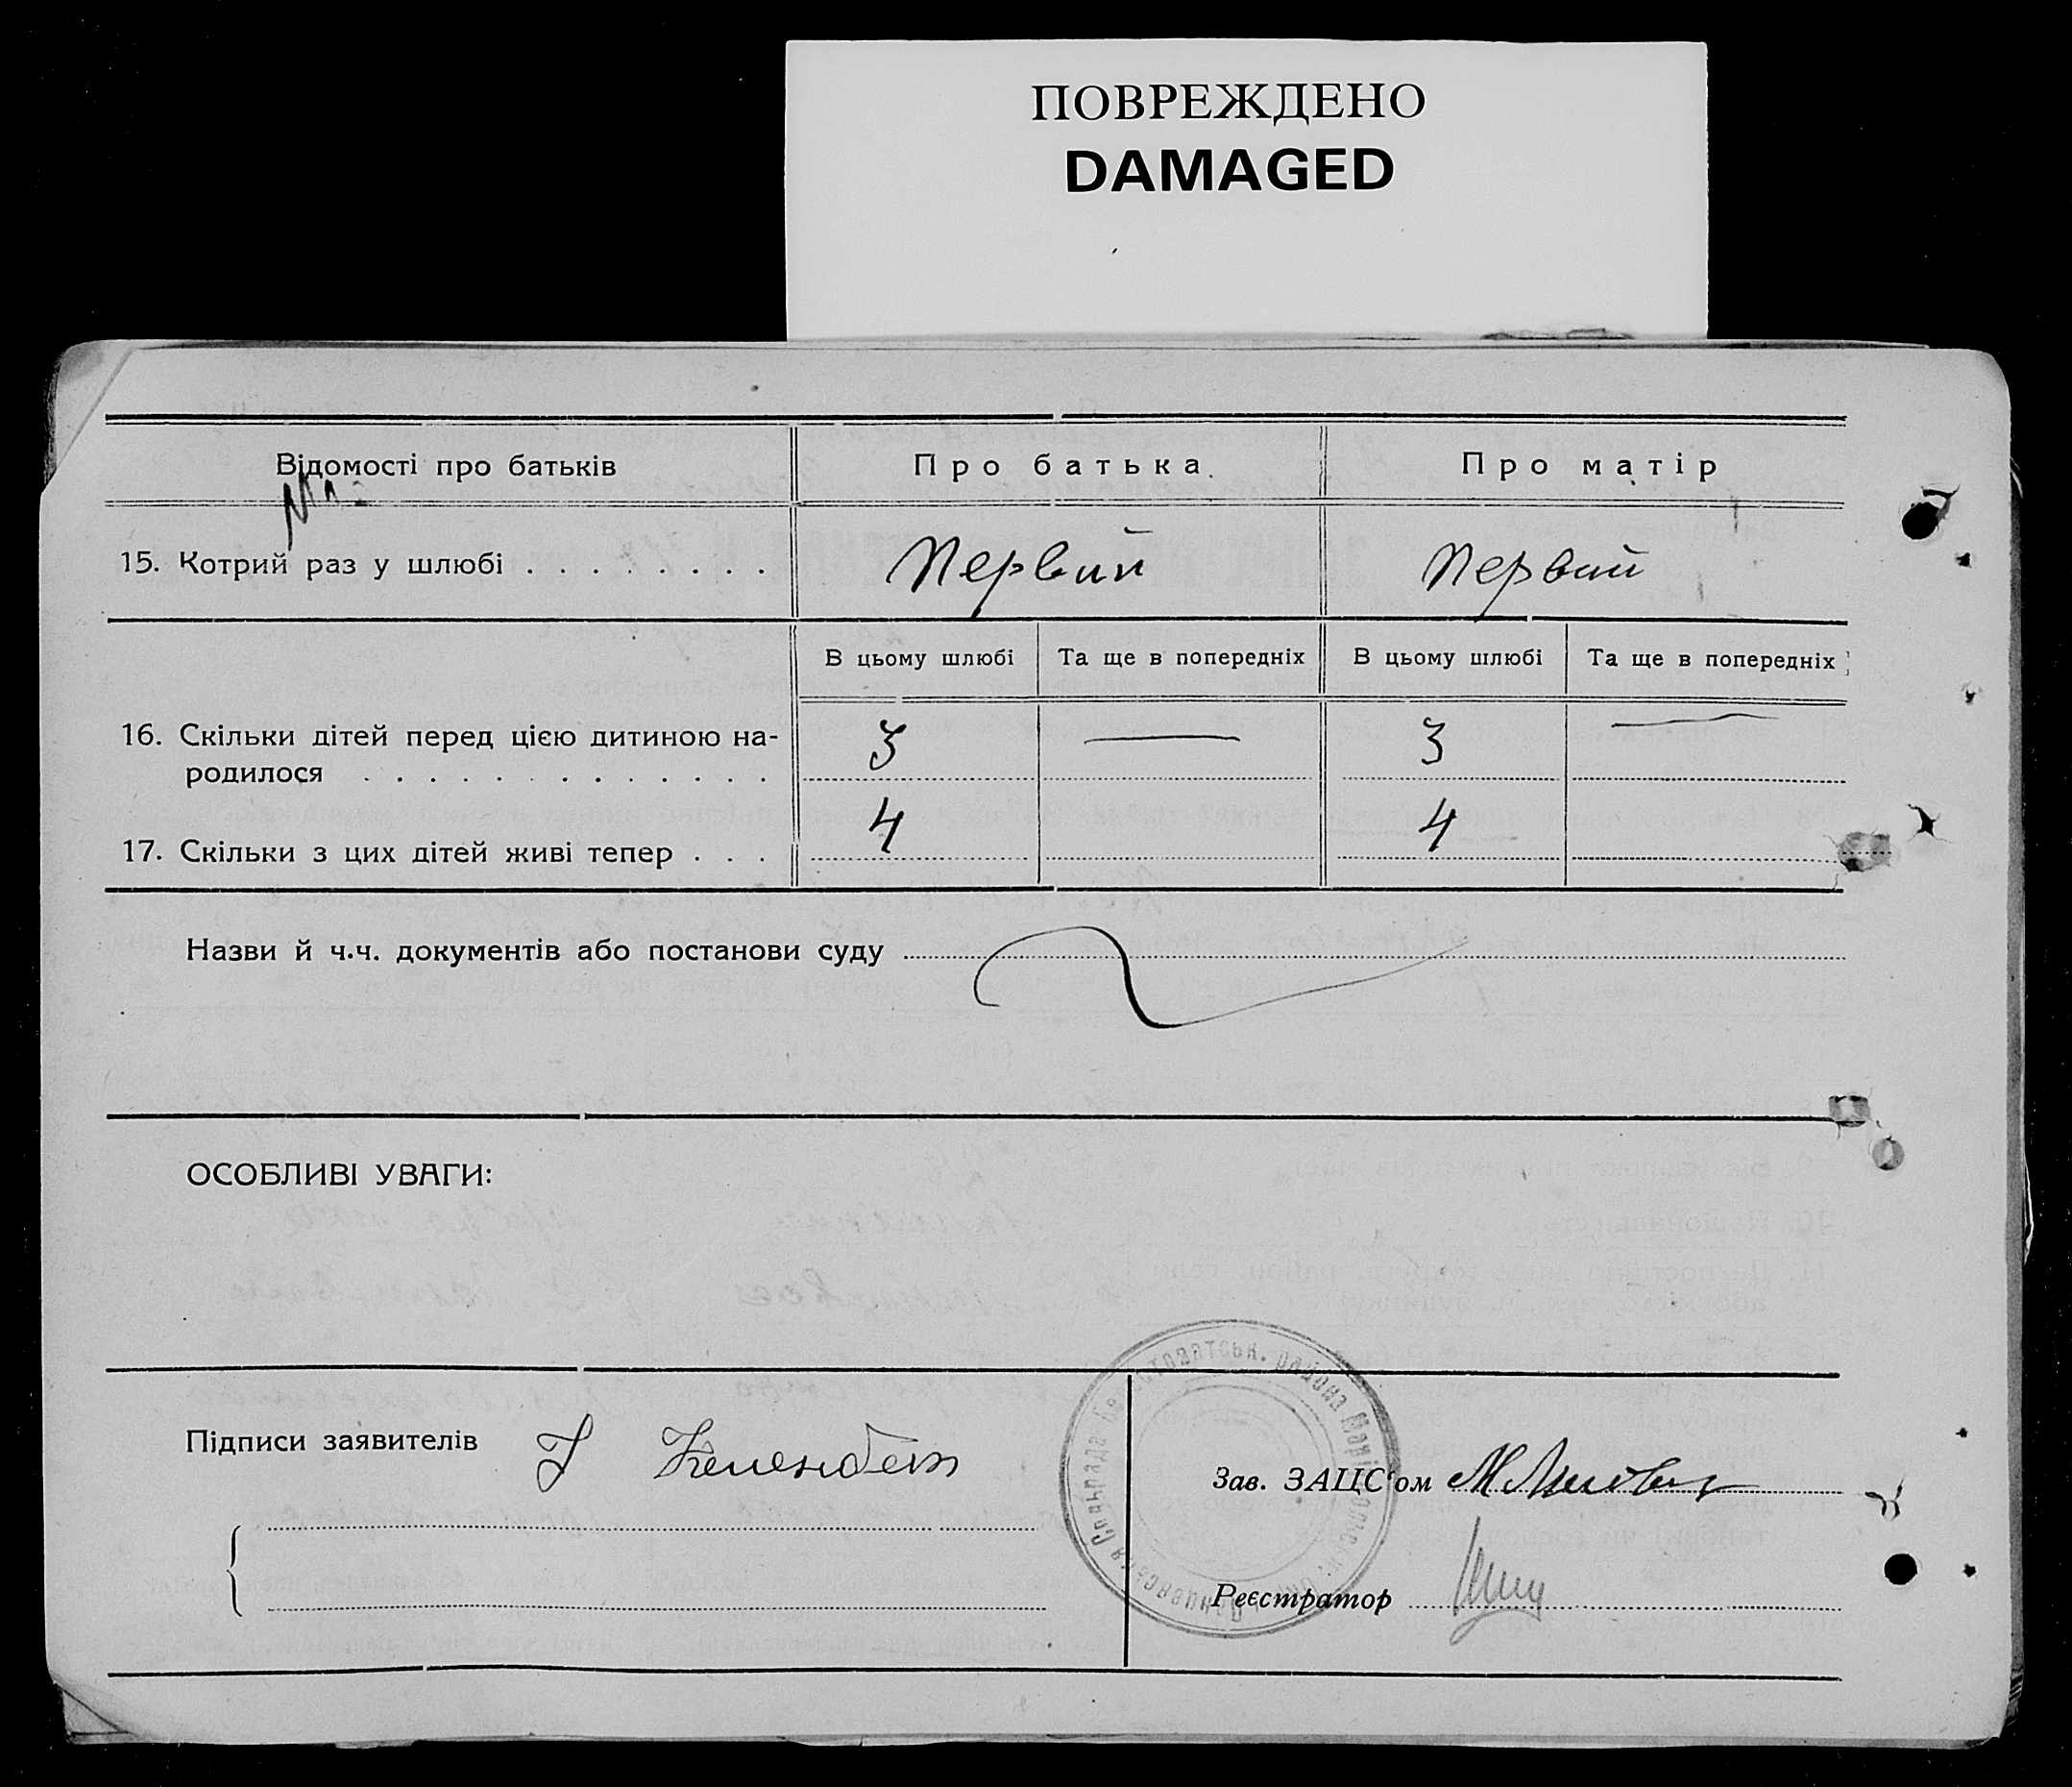 ПОВРЕЖДЕНО
DAMAGED
Відомості про батьків
Про батька
Про матір
15. Котрий раз у шлюбі . . . . . . . .
Первий
Первий
В цьому шлюбі
Та ще в попередніх
В цьому шлюбі
Та ще в попередніх
16. Скільки дітей перед цією дитиною на-
родилося . . . . . . . . . . . . .
3
—
3
—
17. Скільки з цих дітей живі тепер . . .
4
4
Назви й ч.ч. документів або постанови суду
ОСОБЛИВІ УВАГИ:
Підписи заявителів
Зав. ЗАЦС'ом
Реєстратор